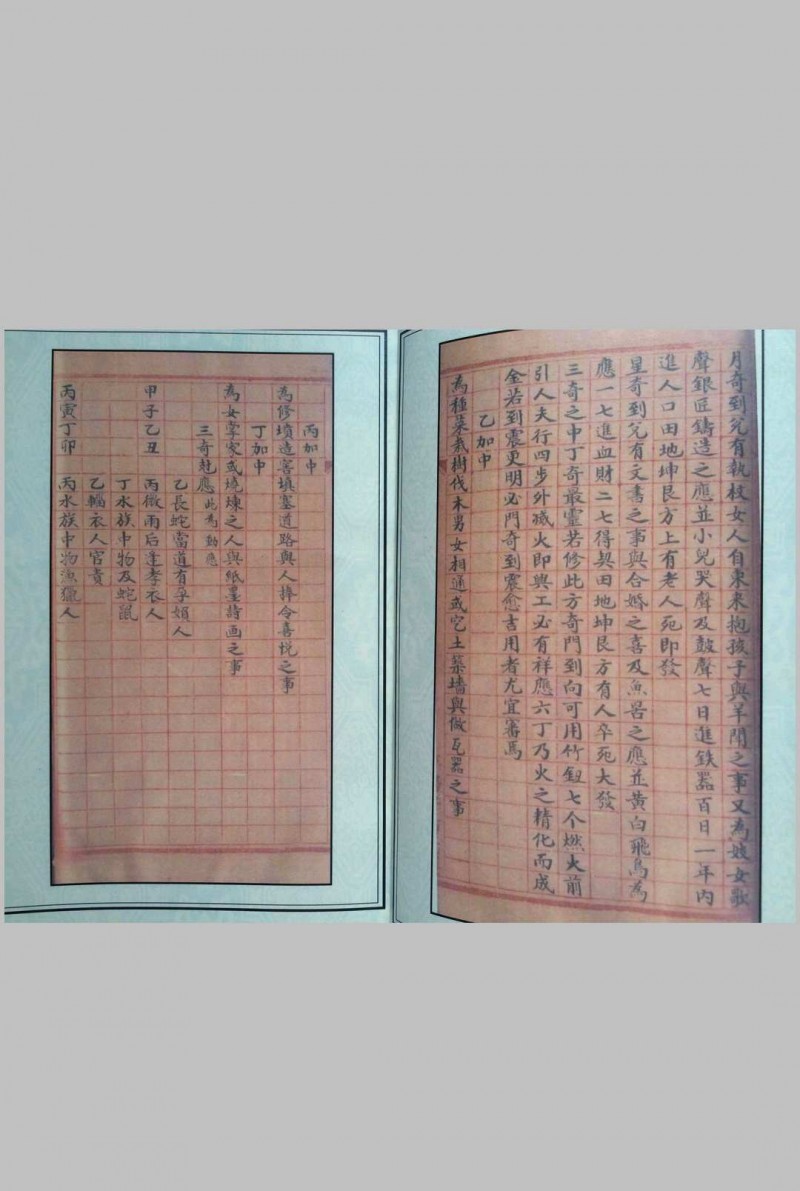 月奇到兌有執杖女人自東来抱孩子與羊鬧之事又為妓女歌
聲銀匠鑄造之應並小兒哭聲及鼓聲七日進鉄器百日一年內
進人口田地坤艮方上有老人死即發
星奇到兌有文書之事與合婚之喜及魚罟之應並黃白飛鳥為
應一七進血財二七得契田地坤艮方有人卒死大發
三奇之中丁奇最靈若修此方奇門到向可用竹釘七个燃火前
引人夫行四步外滅火即與工必有祥應六丁乃火之精化而成
金若到震更明必門奇到震愈吉用者尤宜審焉
乙加中
為種菜栽樹伐木男女相通或它土築墻與做瓦器之事
丙加中
為修墳造窖填塞道路與人捧令喜悦之事
丁加中
為女嫁或燒煉之人與紙墨詩画之事
三奇赴應此為動應
乙長蛇當道有孕娟人
甲子乙丑 丙微雨后逢孝衣人
丁水族中物及蛇鼠
乙衣人官貴
丙寅丁卯 丙水族中物漁獵人